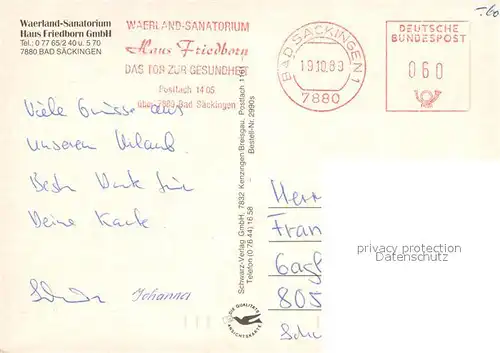 Waerland-Sanatorium
Haus Friedborn GmbH
Tel.: 0 77 65/2 40 u. 5 70
7880 BAD SÄCKINGEN
WAERLAND-SANATORIUM
Haus Friedborn
DAS TOR ZUR GESUNDHEIT
Postfach 1405
über 7880 Bad Säckingen
BAD SÄCKINGEN 1
19.10.83
7880
DEUTSCHE
BUNDESPOST
060
-.60
Viele Grüsse aus
unserem Urlaub.
Besten Dank für
Deine Karte.
Johannes
Schwarz-Verlag GmbH, 7832 Kenzingen/Breisgau, Postfach 1161
Telefon (0 76 44) 16 58 - Bestell-Nr. 2990s
DIE QUALITÄTS
ANSICHTSKARTE
Herr
Fran
805
privacy protection
Datenschutz